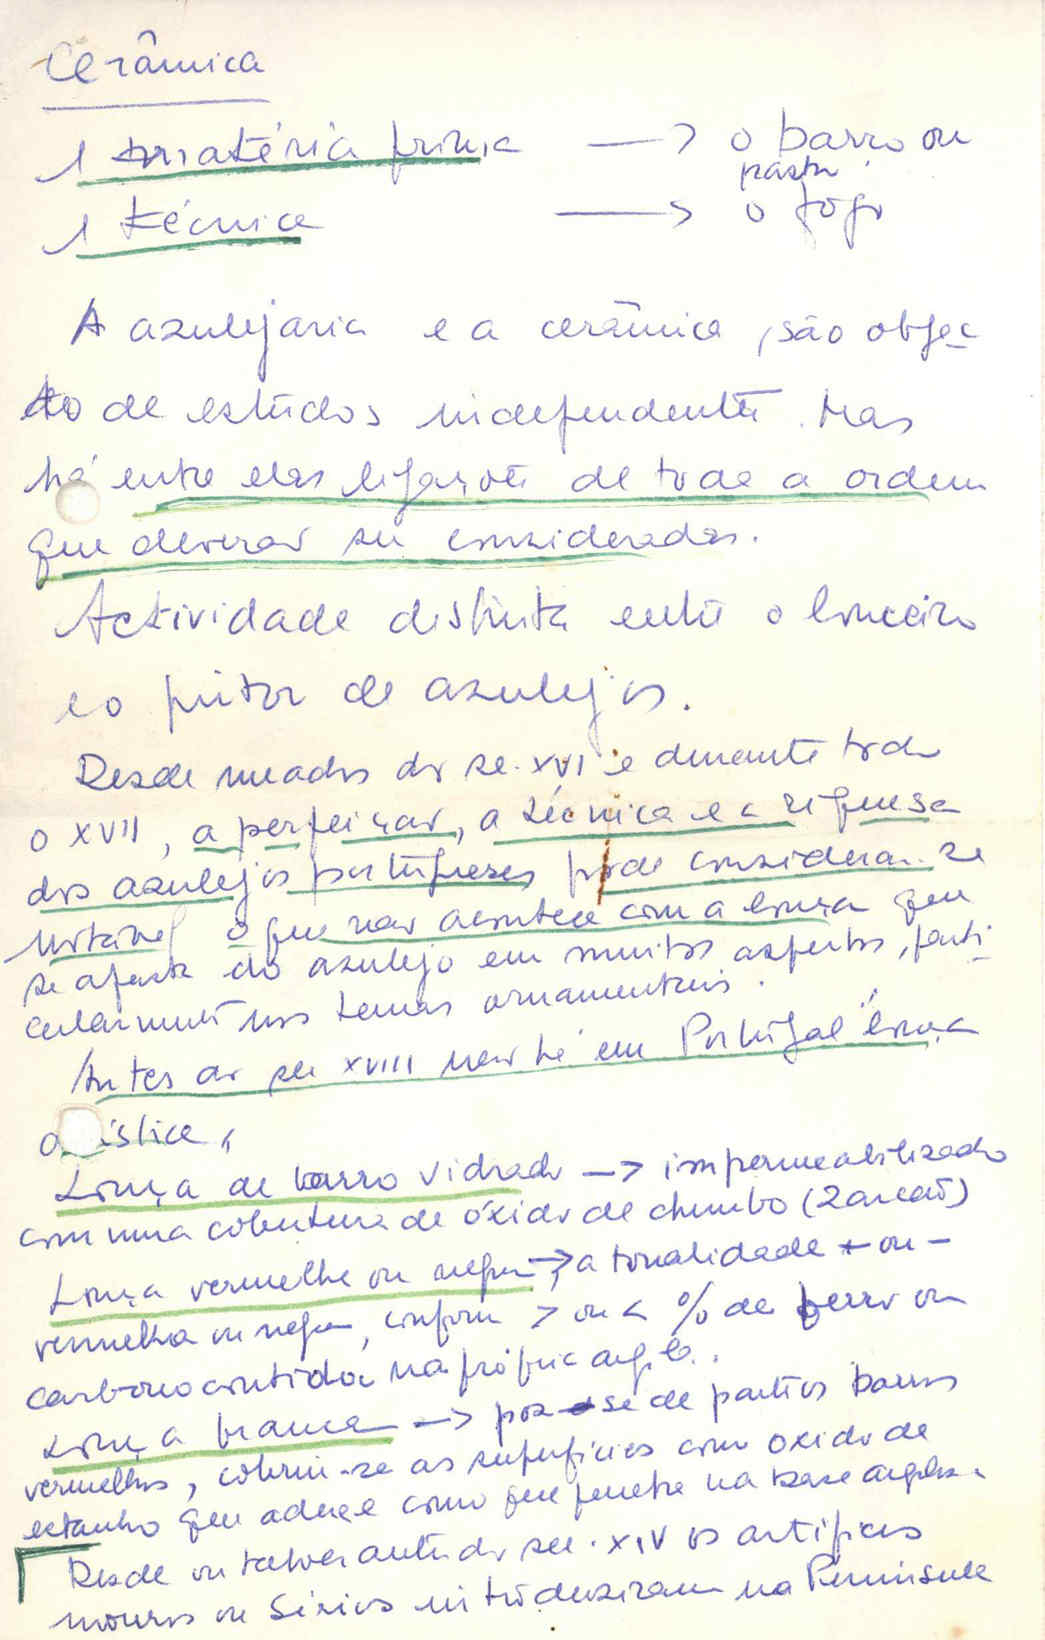 Cerâmica
1 matéria prima → o barro ou
pasta
1 técnica → o fogo
A azulejaria e a cerâmica, são objec
to de estudos independentes. Mas
há entre elas ligações de toda a ordem
que deverão ser consideradas.
Actividade distinta entre o louceiro
e o pintor de azulejos.
Desde meados do séc. XVI e durante todo
o XVII, a perfeição, a técnica e a riqueza
dos azulejos portugueses pode considerar-se
notável o que não acontece com a louça que
se afasta do azulejo em muitos aspectos, parti
cularmente nos temas ornamentais.
Antes do séc XVIII não há em Portugal "louça
artística"
Louça de barro vidrado → impermeabilizado
com uma cobertura de óxido de chumbo (zarcão)
Louça vermelha ou negra → a tonalidade + ou -
vermelha ou negra, conforme > ou < % de ferro ou
carbono contido na própria argila.
Louça branca → poz-se de parte os barros
vermelhos, cobrem-se as superfícies com oxido de
estanho que adere como que penetra na base argilosa.
Desde ou talvez antes do séc. XIV os artífices
mouros ou Sírios introduziram na Península